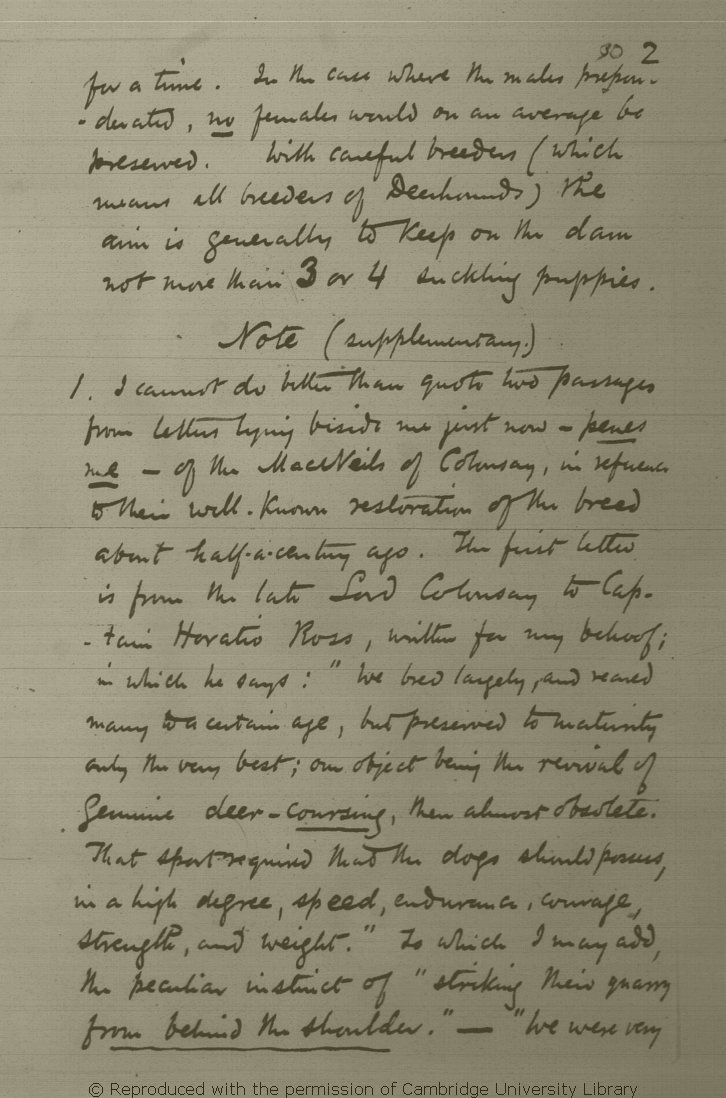 30 2
for a time. In the case where the males prepon-
-derated, no females would on an average be
preserved. With careful breeders (which
means all breeders of Deerhounds) the
aim is generally to keep on the dam
not more than 3 or 4 suckling puppies.
Note (supplementary.)
1. I cannot do better than quote two passages
from letters lying beside me just now - penes
me - of the MacNeils of Colonsay, in reference
to their well-known restoration of the breed
about half-a-century ago. The first letter
is from the late Lord Colonsay to Cap-
-tain Horatio Ross, written for my behoof;
in which he says: "We bred largely, and reared
many to a certain age, but preserved to maturity
only the very best; our object being the revival of
genuine deer-coursing, then almost obsolete.
That sport required that the dogs should possess,
in a high degree, speed, endurance, courage,
strength, and weight." To which I may add,
the peculiar instinct of "striking their quarry
from behind the shoulder." — "We were very
© Reproduced with the permission of Cambridge University Library